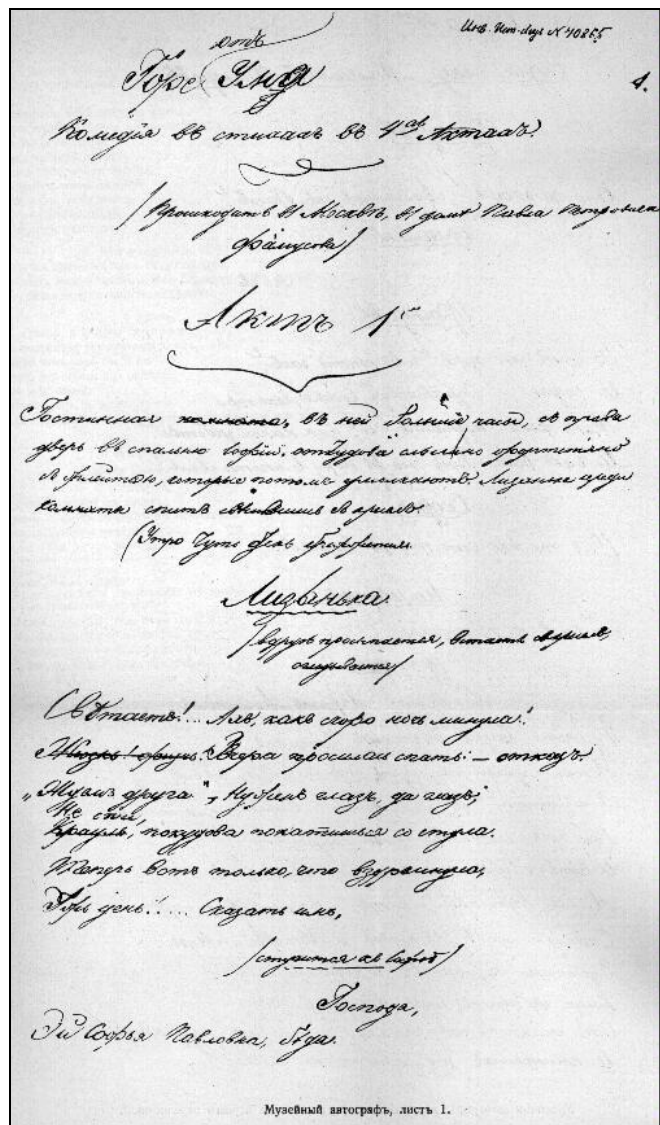 отъ
Горе Ума
1.
Комедія въ стихахъ въ 4хъ Актахъ.
/Происходитъ въ Москвѣ, въ домѣ Павла Петровича
Фамусова/
Актъ 1й
Гостинная комната, въ ней большіе часы, съ права
дверь въ спальню Софіи, откудова слышно фортопіяно
съ флейтою, которые потомъ умолкаютъ. Лизанька среди
комнаты спитъ свѣсившись съ креселъ.
(Утро чуть день брежжется
Лизанька.
/вдругъ просыпается, встаетъ съ креселъ,
оглядывается/
Свѣтаетъ!... Ахъ, какъ скоро ночь минула!
Вчера просилась спать: – отказъ.
„Ждемъ друга", Нуженъ глазъ, да глазъ;
Не спи,
покудова покатишься со стула.
Теперь вотъ только, что вздремнула,
Ужъ день!.... Сказать имъ,
/стучится къ Софьѣ/
Господа,
Эй Софья Павловна, бѣда.
Музейный автографъ, листъ 1.